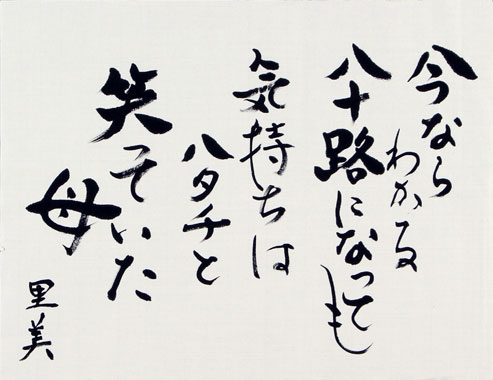 今なら
わかる
八十路になっても
気持ちは
ハタチと
笑っていた
母
里美